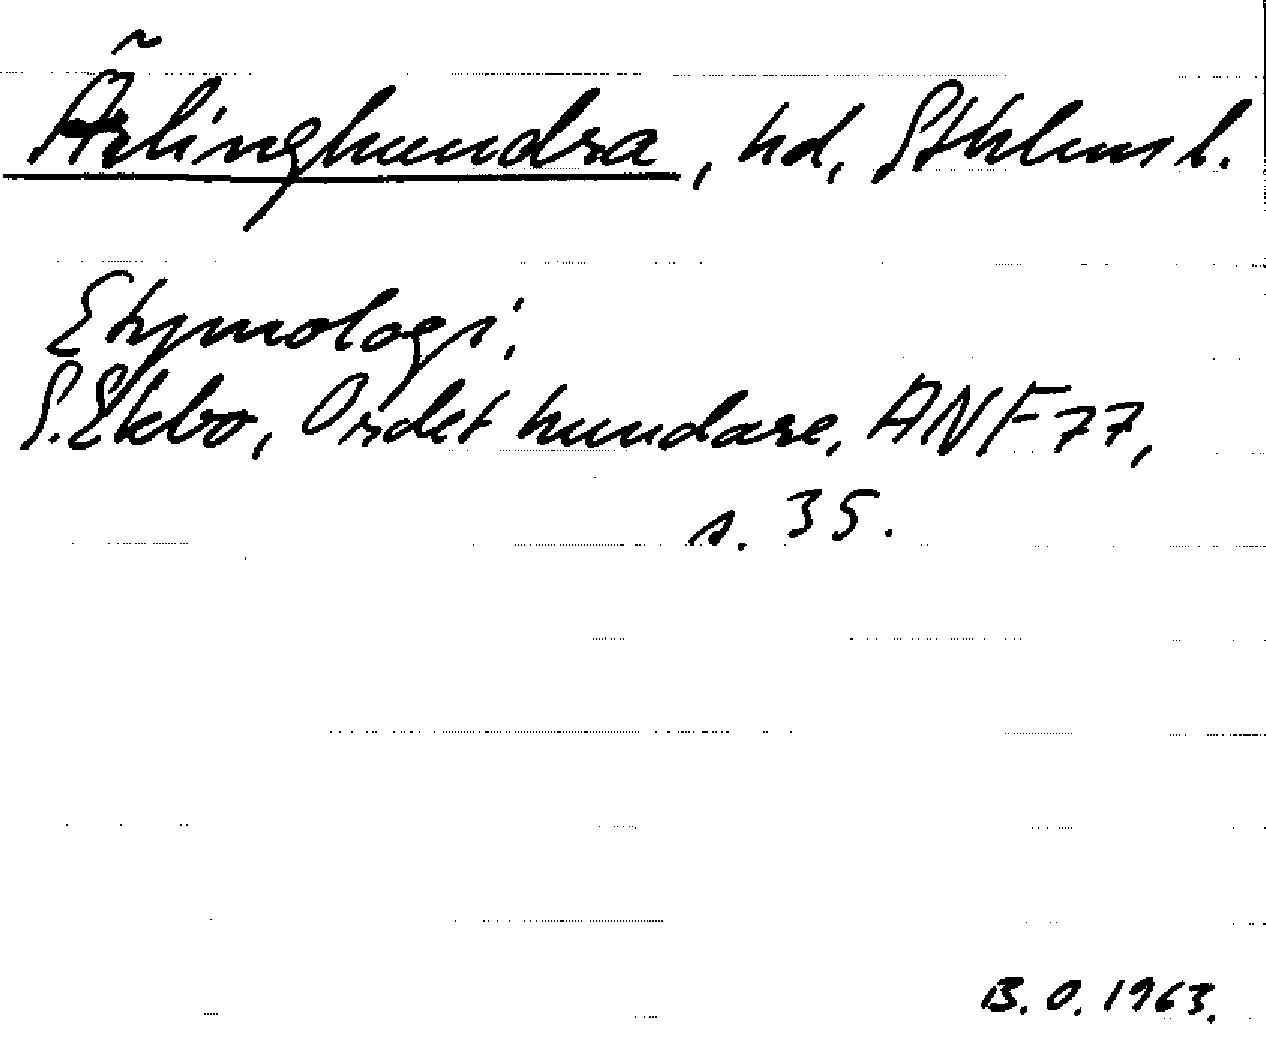 Ärlinghundra, hd, Sthlms l.
Etymologi.
S. Ekbo, Ordet hundare, ANF 77,
s. 35.
B. O. 1963.